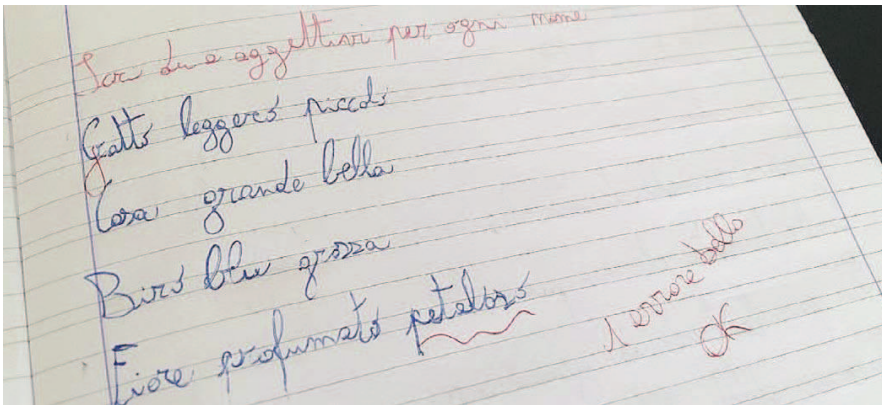 Scri due aggettivi per ogni nome
Gatto leggero piccolo
Casa grande bella
Biro blu grossa
Fiore profumato petaloso
1 errore bello
OK